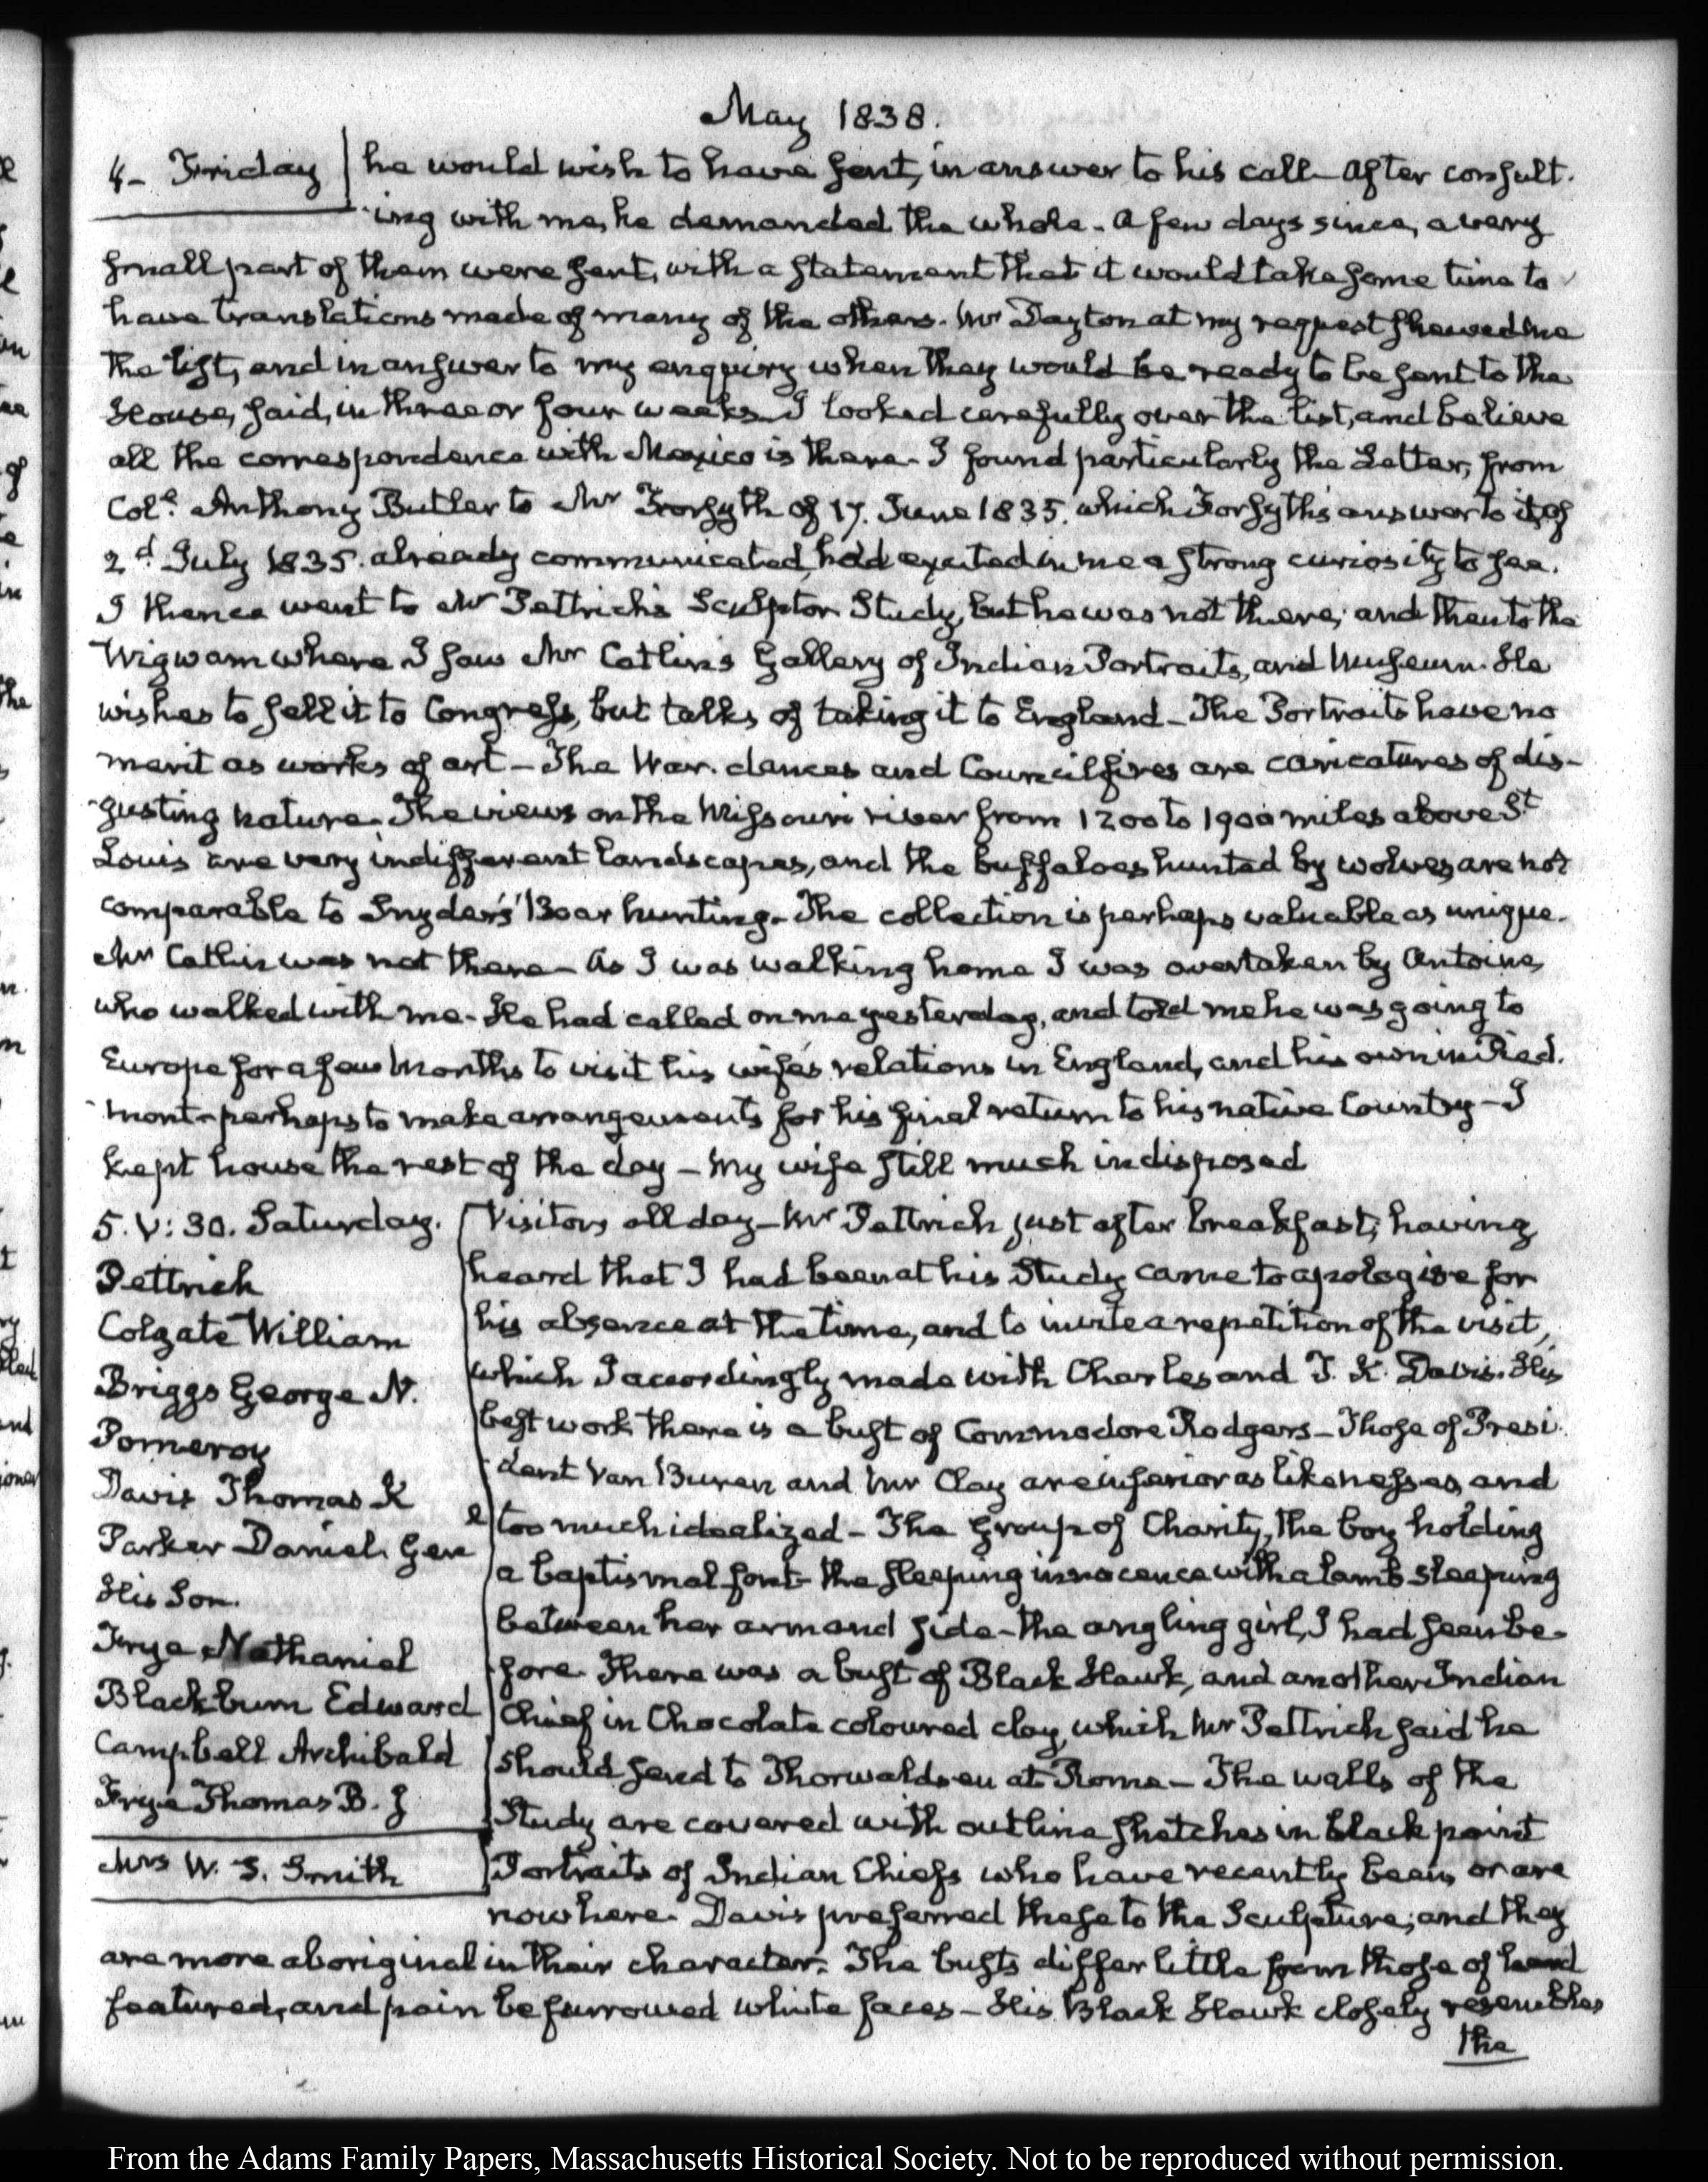 May 1838.
4- Friday
he would wish to have sent, in answer to his call- After consult-
-ing with me, he demanded the whole. A few days since, a very
small part of them were sent, with a statement that it would take some time to
have translations made of many of the others. Mr Dayton at my request shewed me
the list, and in answer to my enquiry when they would be ready to be sent to the
House, said, in three or four weeks- I looked carefully over the list, and believe
all the correspondence with Mexico is there- I found particularly the Letter, from
Coll. Anthony Butler to Mr Forsyth of 17. June 1835. which Forsyth's answer to it, of
2d. July 1835. already communicated, had excited in me a strong curiosity to see.
I thence went to Mr Pettrich's Sculptor Study, but he was not there; and then to the
Wigwam where I saw Mr Catlin's Gallery of Indian Portraits, and Museum. He
wishes to sell it to Congress, but talks of taking it to England- The Portraits have no
merit as works of art- The War-dances and Council fires are caricatures of dis-
-gusting nature. The views on the Missouri river from 1200 to 1900 miles above St
Louis are very indifferent landscapes, and the buffaloes hunted by wolves, are not
comparable to Snyder's Boar hunting- The collection is perhaps valuable as unique.
Mr Catlin was not there- As I was walking home I was overtaken by Antoine,
who walked with me- He had called on me yesterday, and told me he was going to
Europe for a few months to visit his wife's relations in England, and his own in Pied-
-mont- perhaps to make arrangements for his final return to his native Country- I
kept house the rest of the day- My wife still much indisposed
5. V: 30. Saturday.
Pettrich
Colgate William
Briggs George N.
Pomeroy
Davis Thomas K
Parker Daniel. Genl
His Son.
Frye Nathaniel
Blackburn Edward
Campbell Archibald
Frye Thomas B. J
Mrs W. S. Smith
Visitors all day- Mr Pettrich just after breakfast, having
heard that I had been at his Study came to apologise for
his absence at the time, and to invite a repetition of the visit,
which I accordingly made with Charles and T. K. Davis. His
best work there is a bust of Commodore Rodgers- Those of Presi-
-dent Van Buren and Mr Clay are inferior as likenesses, and
too much idealized- The group of Charity, the boy holding
a baptismal font- the sleeping innocence with a lamb sleeping
between her arm and side- the angling girl, I had seen be-
-fore. There was a bust of Black Hawk, and another Indian
Chief in Chocolate coloured clay, which Mr Pettrich said he
should send to Thorwaldsen at Rome- The walls of the
Study are covered with outline sketches in black paint
Portraits of Indian Chiefs who have recently been, or are
now here. Davis preferred these to the Sculpture; and they
are more aboriginal in their character. The busts differ little from those of hard
featured, and pain befurrowed white faces- His Black Hawk closely resembles
the
From the Adams Family Papers, Massachusetts Historical Society. Not to be reproduced without permission.